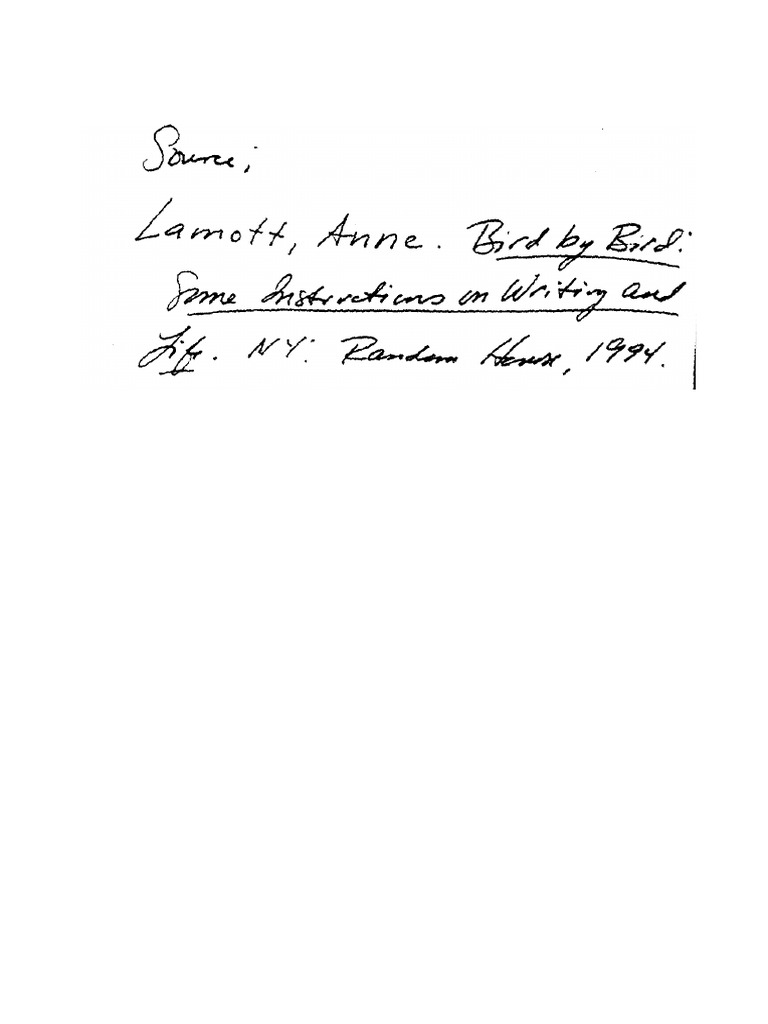 Source;
Lamott, Anne. Bird by Bird:
Some Instructions on Writing and
Life. NY: Random House, 1994.